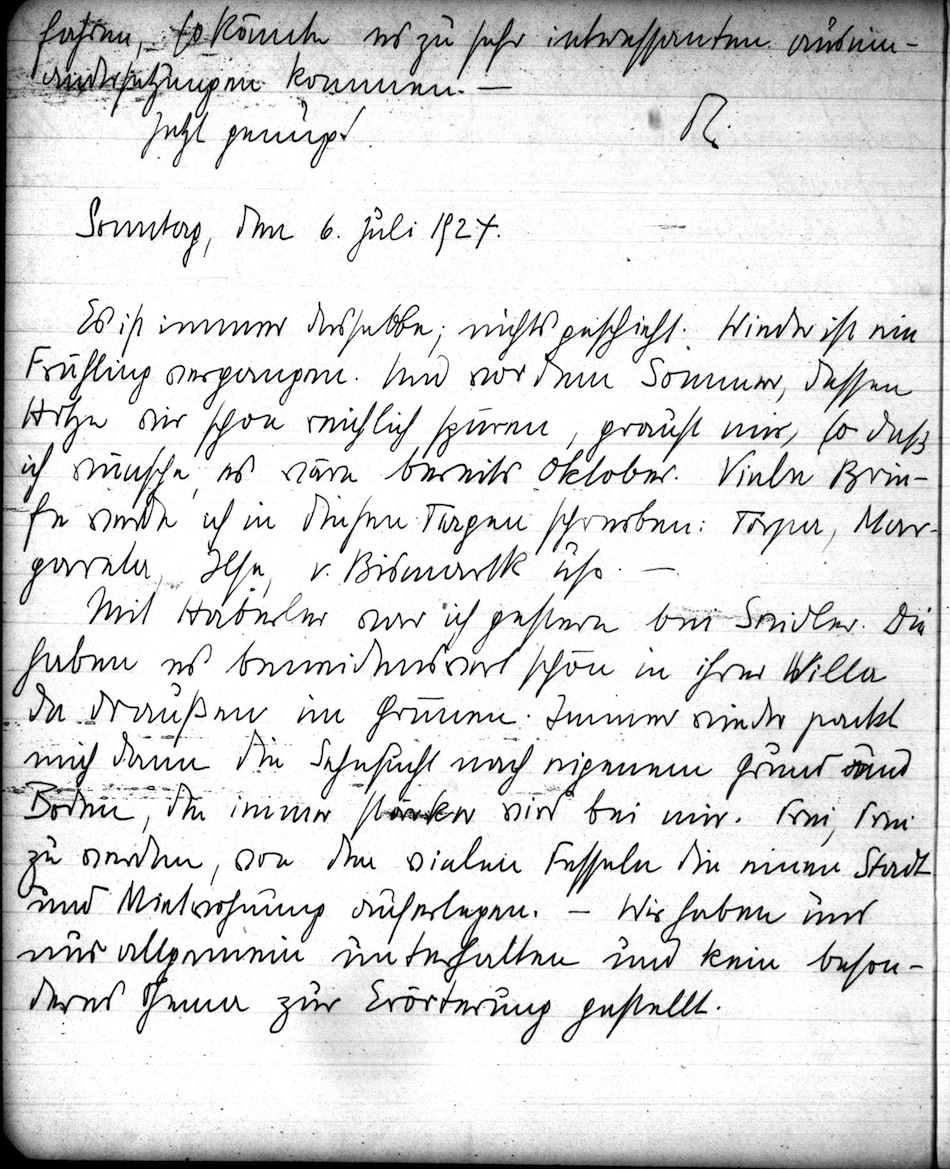 fahren, so könnte es zu sehr interessanten ausein-
andersetzungen kommen. —
Jetzt genug! R.
Sonntag, den 6. Juli 1924.
Es ist immer dasselbe; nichts geschieht. Wieder ist ein
Frühling vergangen. Und vor dem Sommer, dessen
Hitze wir schon reichlich spüren, graust mir, so daß
ich wünsche, es wäre bereits Oktober. Viele Brie-
fe werde ich in diesen Tagen schreiben: Mar-
garete, Ilse, v. Bismarck usw. —
Mit Häberler war ich gestern bei Seidler. Die
haben es beneidenswert schön in ihrer Willa
da draußen im Grünen. Immer wieder packt
mich dann die Sehnsucht nach eigenem Grund und
Boden, die immer stärker wird bei mir. Frei, frei
zu werden, von den vielen Fesseln die einem Stadt
und Mietwohnung auferlegen. — Wir haben uns
nur allgemein unterhalten und kein beson-
deres Thema zur Erörterung gestellt.